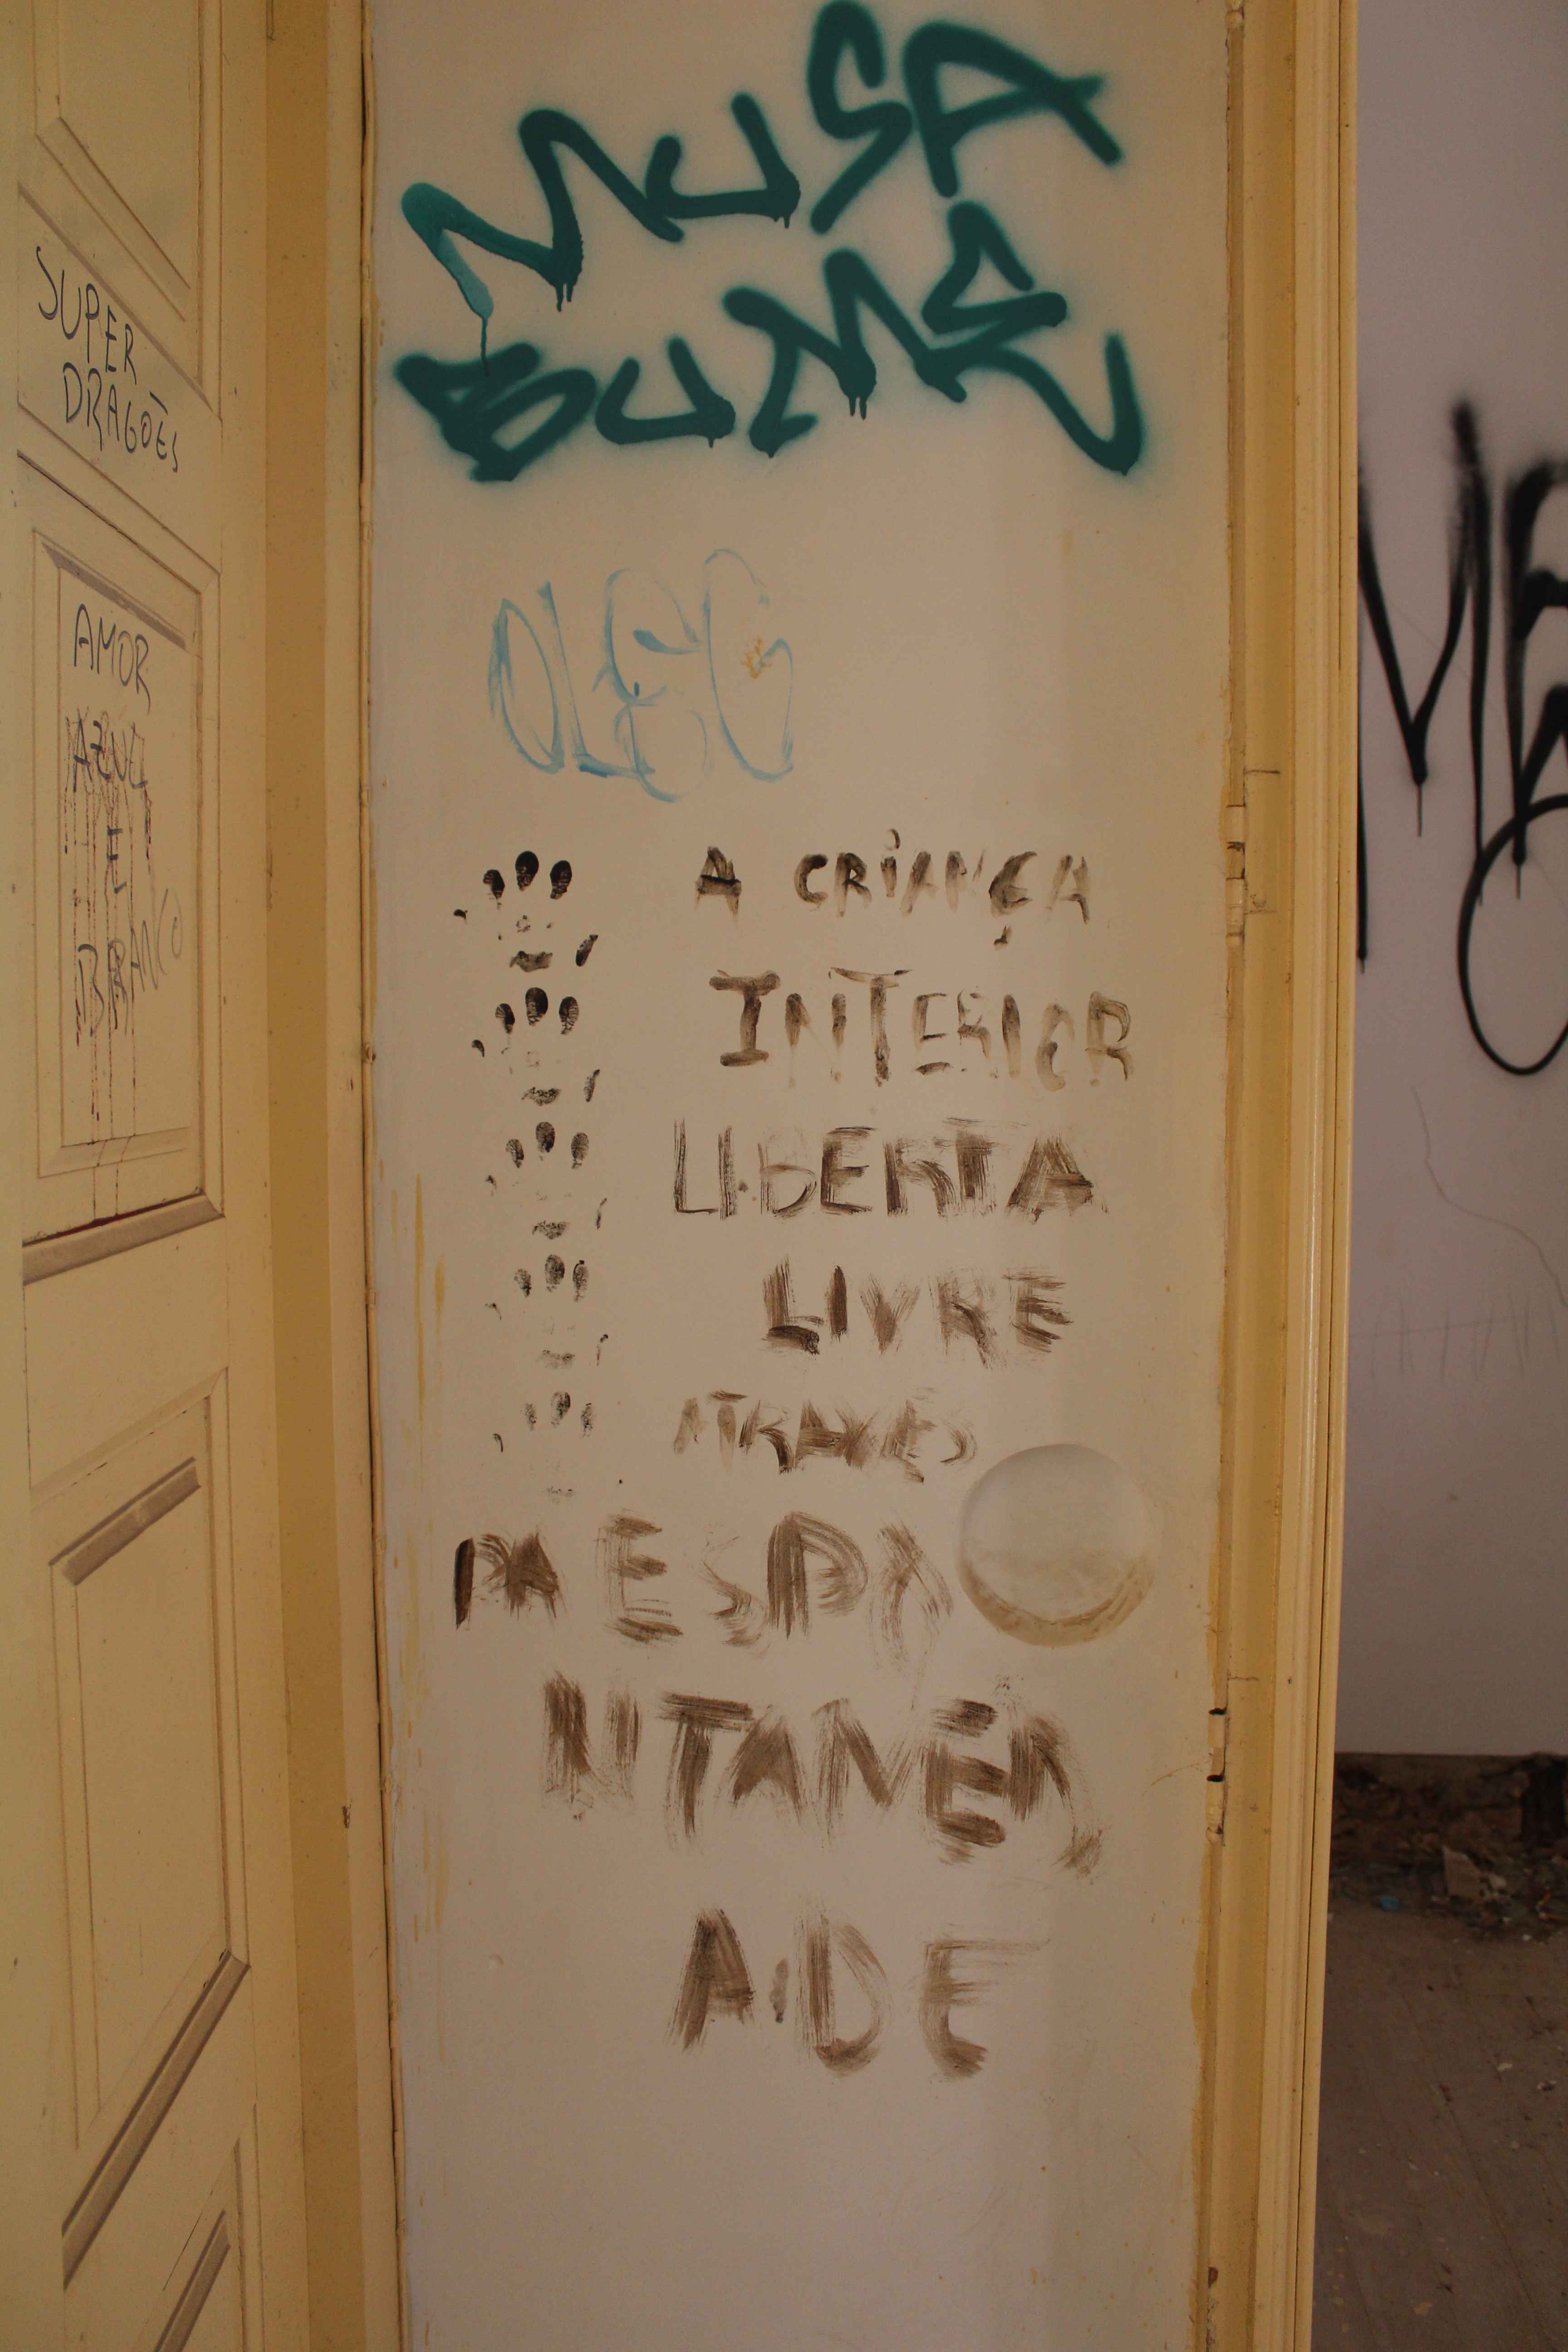 SUPER
DRAGÕES
AMOR
AZUL
E
BRANCO
MUSA
BUME
OLEG
A CRIANÇA
INTERIOR
LIBERTA
LIVRE
ATRAVÉS
DA ESPO
NTANEA
AIDE